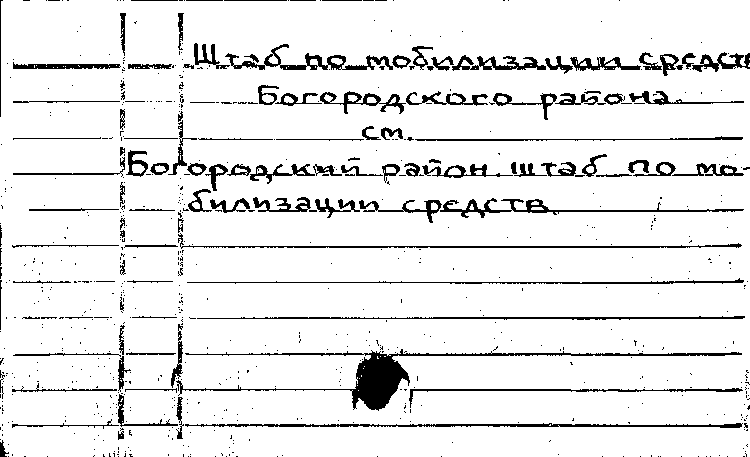 Штаб по мобилизации средств
Богородского района
см.
Богородский район. штаб по мо-
билизации средств.